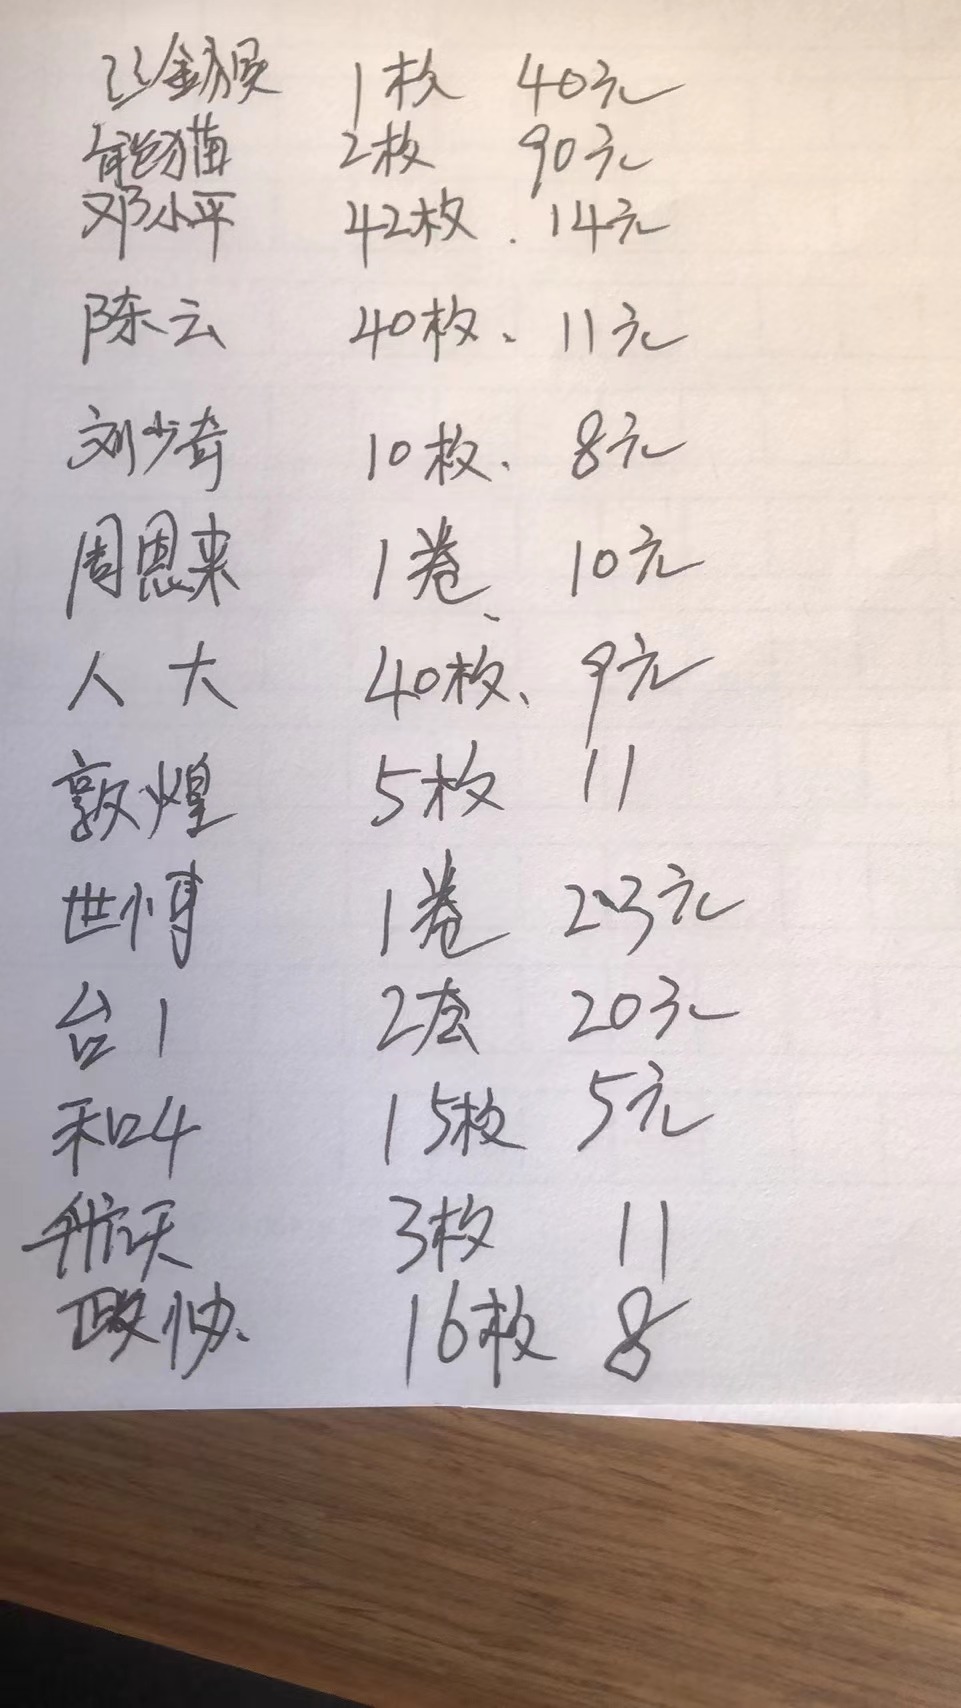 1枚 40元
熊猫 2枚 90元
邓小平 42枚. 14元
陈云 40枚、11元
刘少奇 10枚、8元
周恩来 1卷、10元
人大 40枚、9元
敦煌 5枚 11
世博 1卷 203元
台1 2套 20元
和4 15枚 5元
航天 3枚 11
政协、 16枚 8